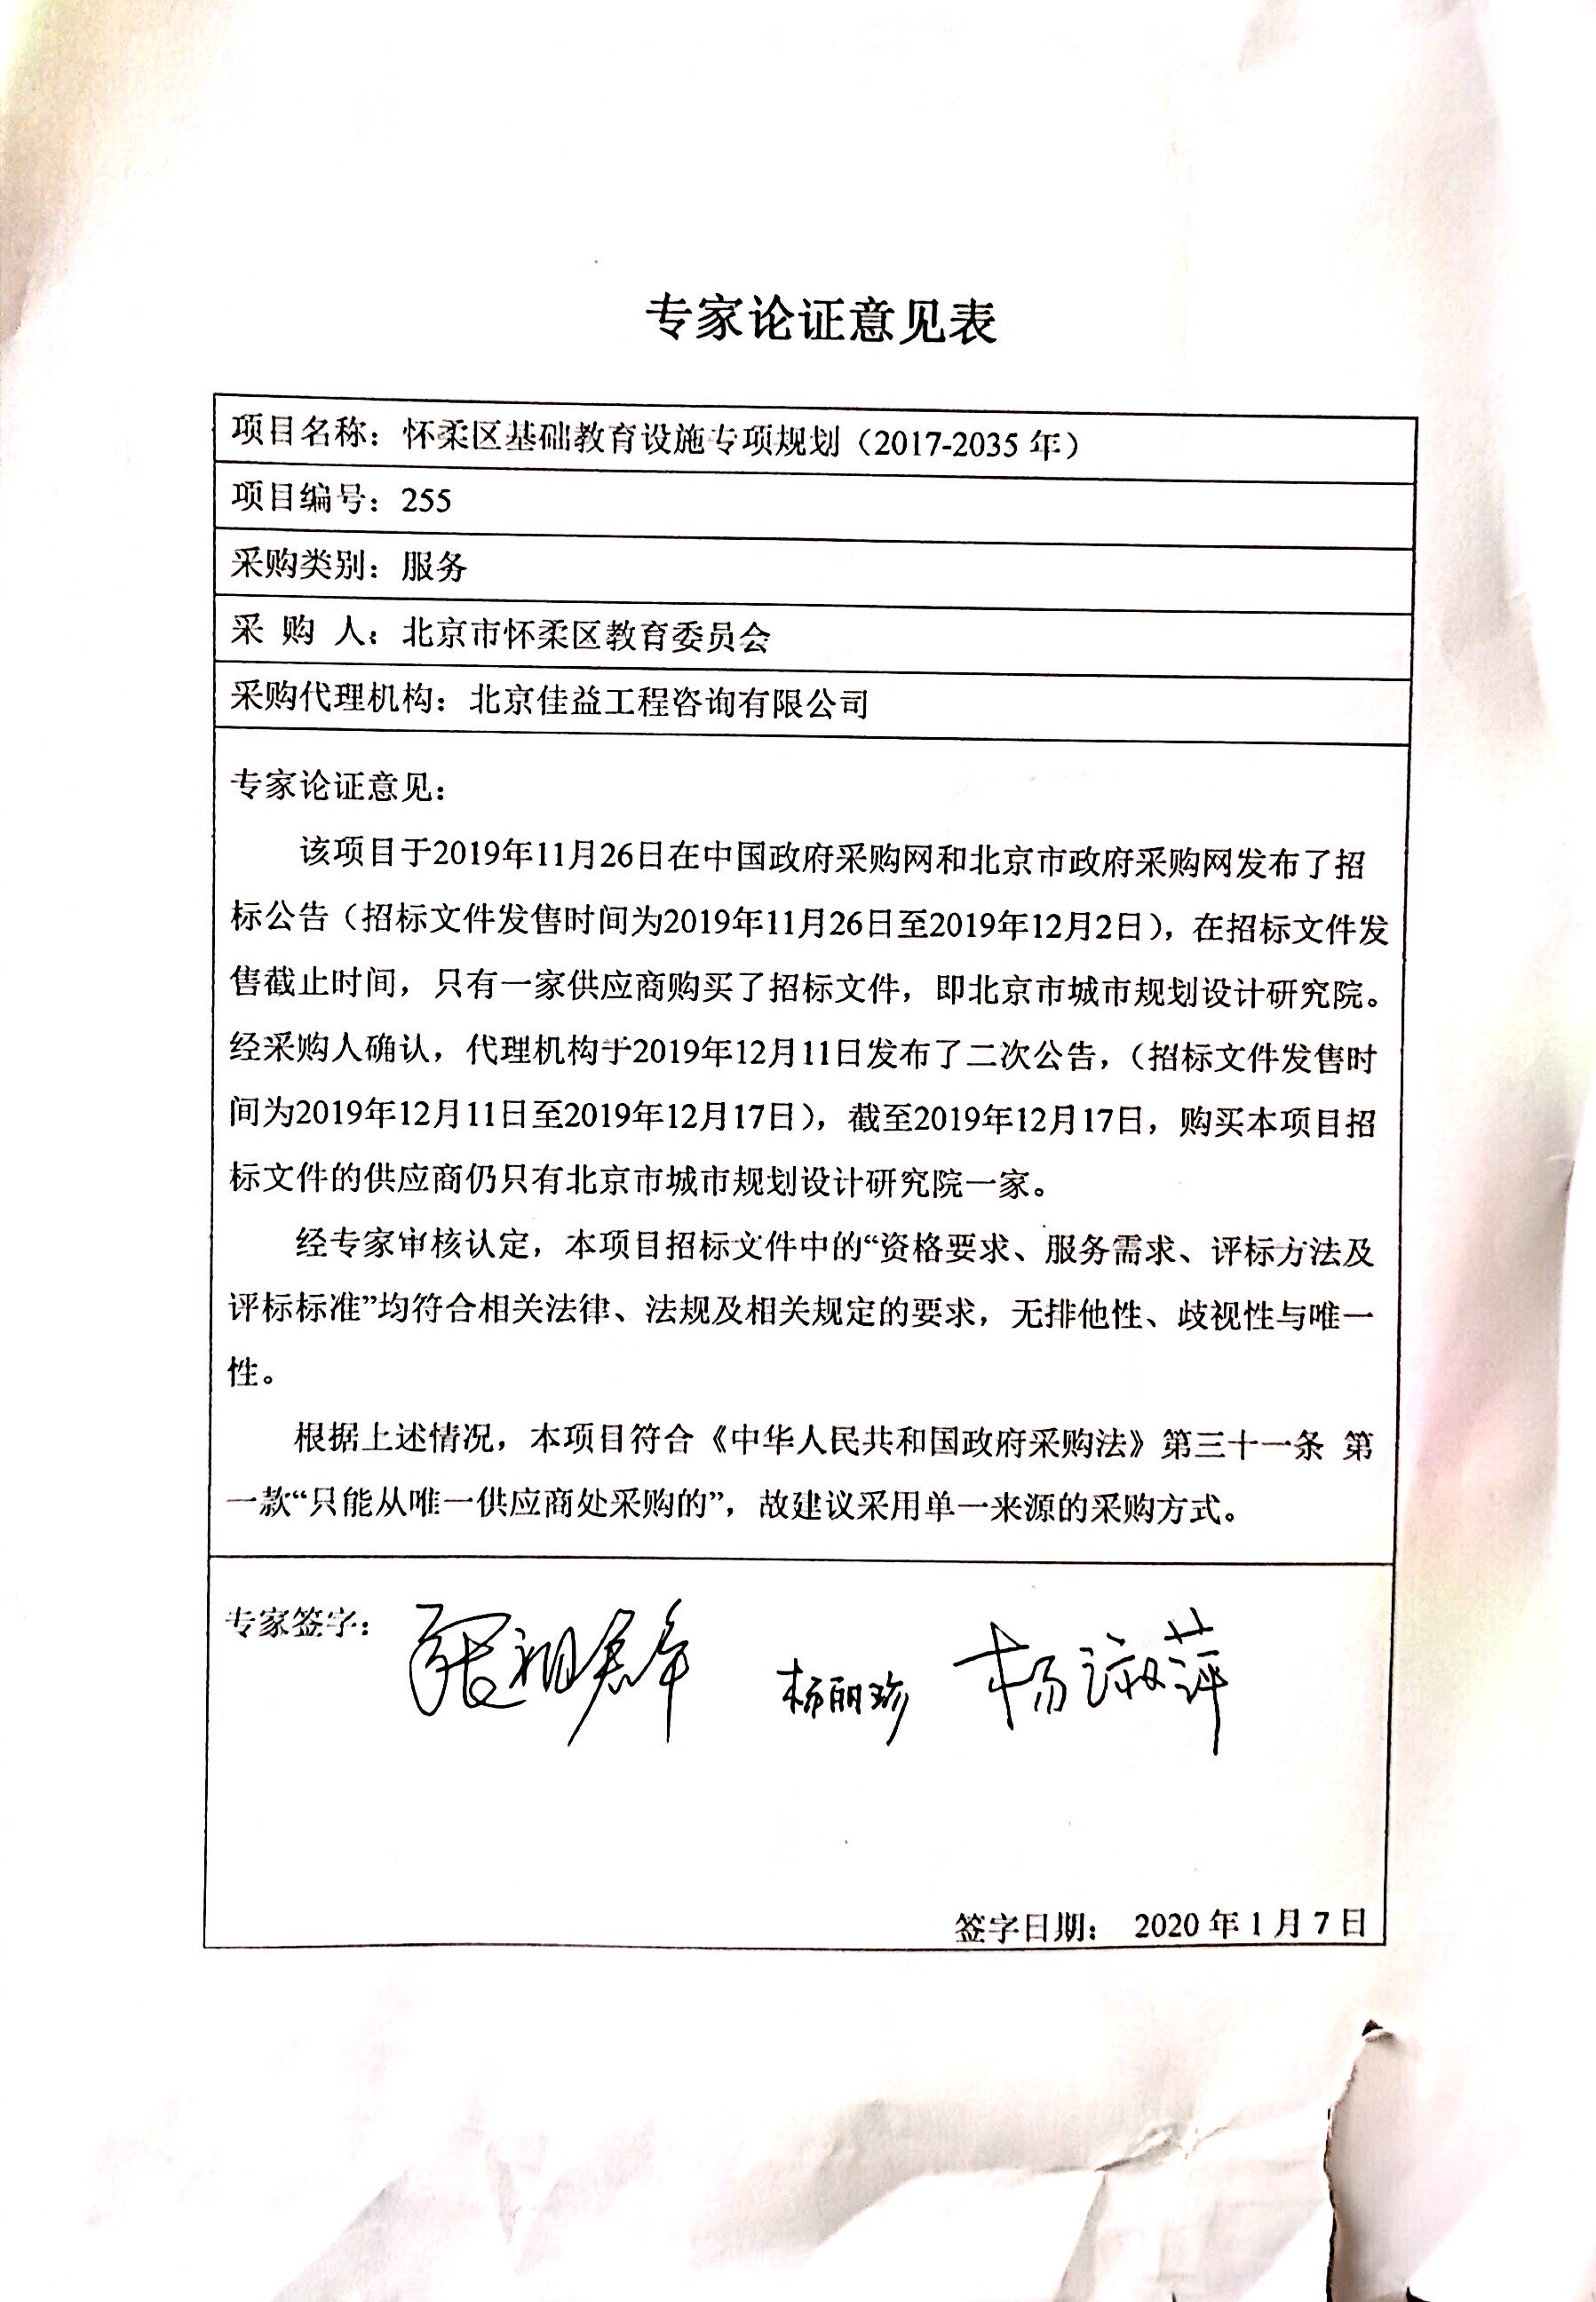 专家论证意见表
项目名称：怀柔区基础教育设施专项规划（2017-2035 年）
项目编号：255
采购类别：服务
采 购 人：北京市怀柔区教育委员会
采购代理机构：北京佳益工程咨询有限公司
专家论证意见：
该项目于2019年11月26日在中国政府采购网和北京市政府采购网发布了招
标公告（招标文件发售时间为2019年11月26日至2019年12月2日），在招标文件发
售截止时间，只有一家供应商购买了招标文件，即北京市城市规划设计研究院。
经采购人确认，代理机构于2019年12月11日发布了二次公告，（招标文件发售时
间为2019年12月11日至2019年12月17日），截至2019年12月17日，购买本项目招
标文件的供应商仍只有北京市城市规划设计研究院一家。
经专家审核认定，本项目招标文件中的“资格要求、服务需求、评标方法及
评标标准”均符合相关法律、法规及相关规定的要求，无排他性、歧视性与唯一
性。
根据上述情况，本项目符合《中华人民共和国政府采购法》第三十一条 第
一款“只能从唯一供应商处采购的”，故建议采用单一来源的采购方式。
专家签字： 杨丽珍 杨淑萍
签字日期： 2020 年 1 月 7 日